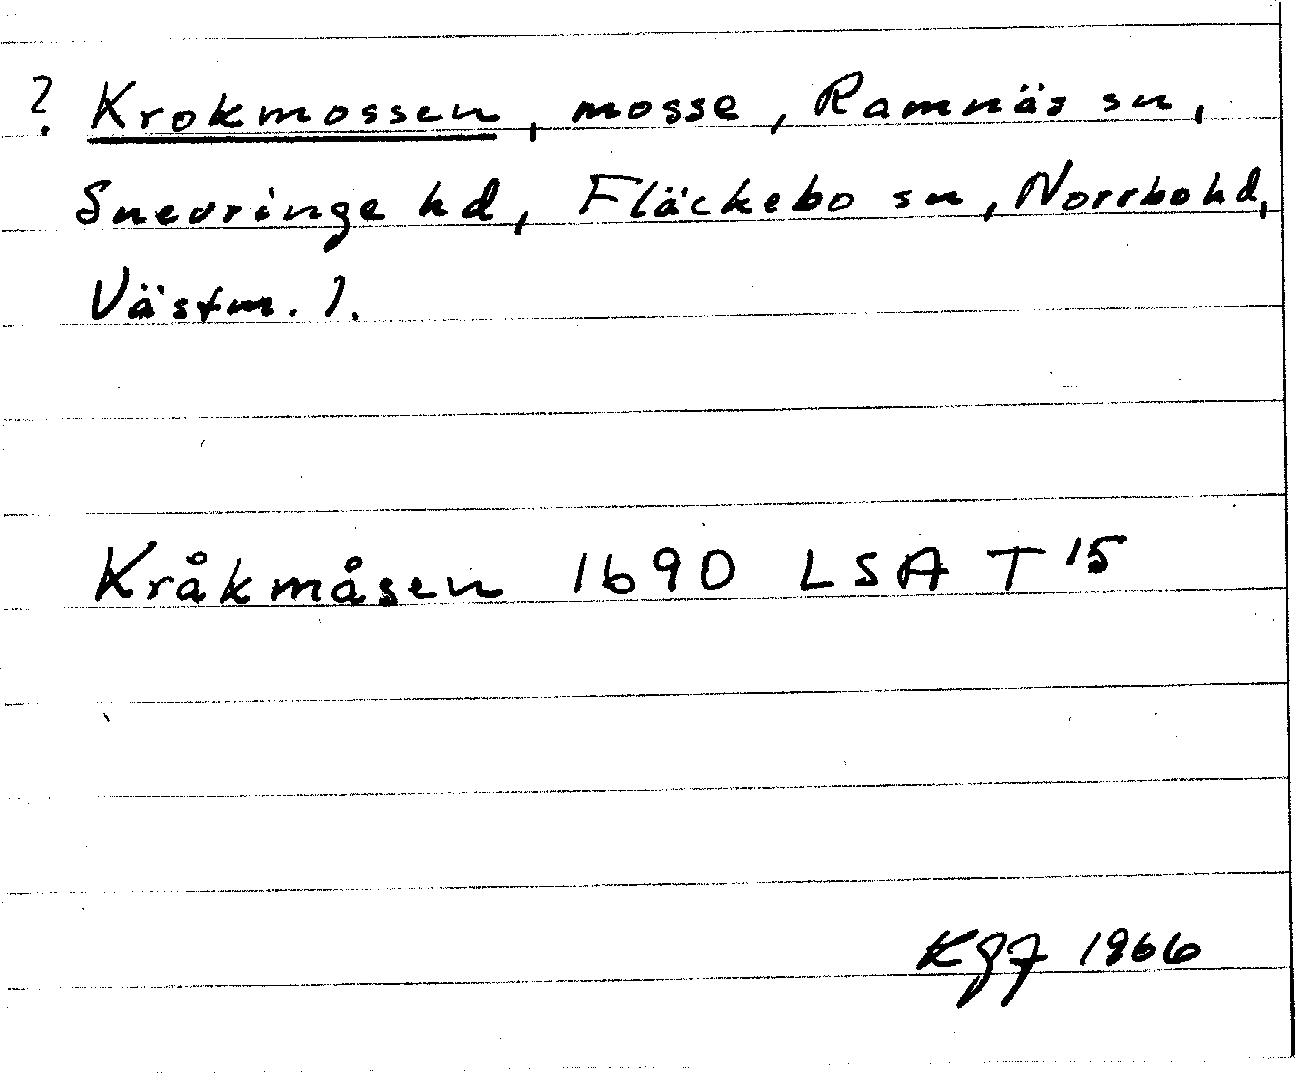 ? Krokmossen, mosse, Ramnäs sn,
Snevringe hd, Fläckebo sn, Norrbo hd,
Västm. l.
Kråkmåsen 1690 LSA T 15
1966